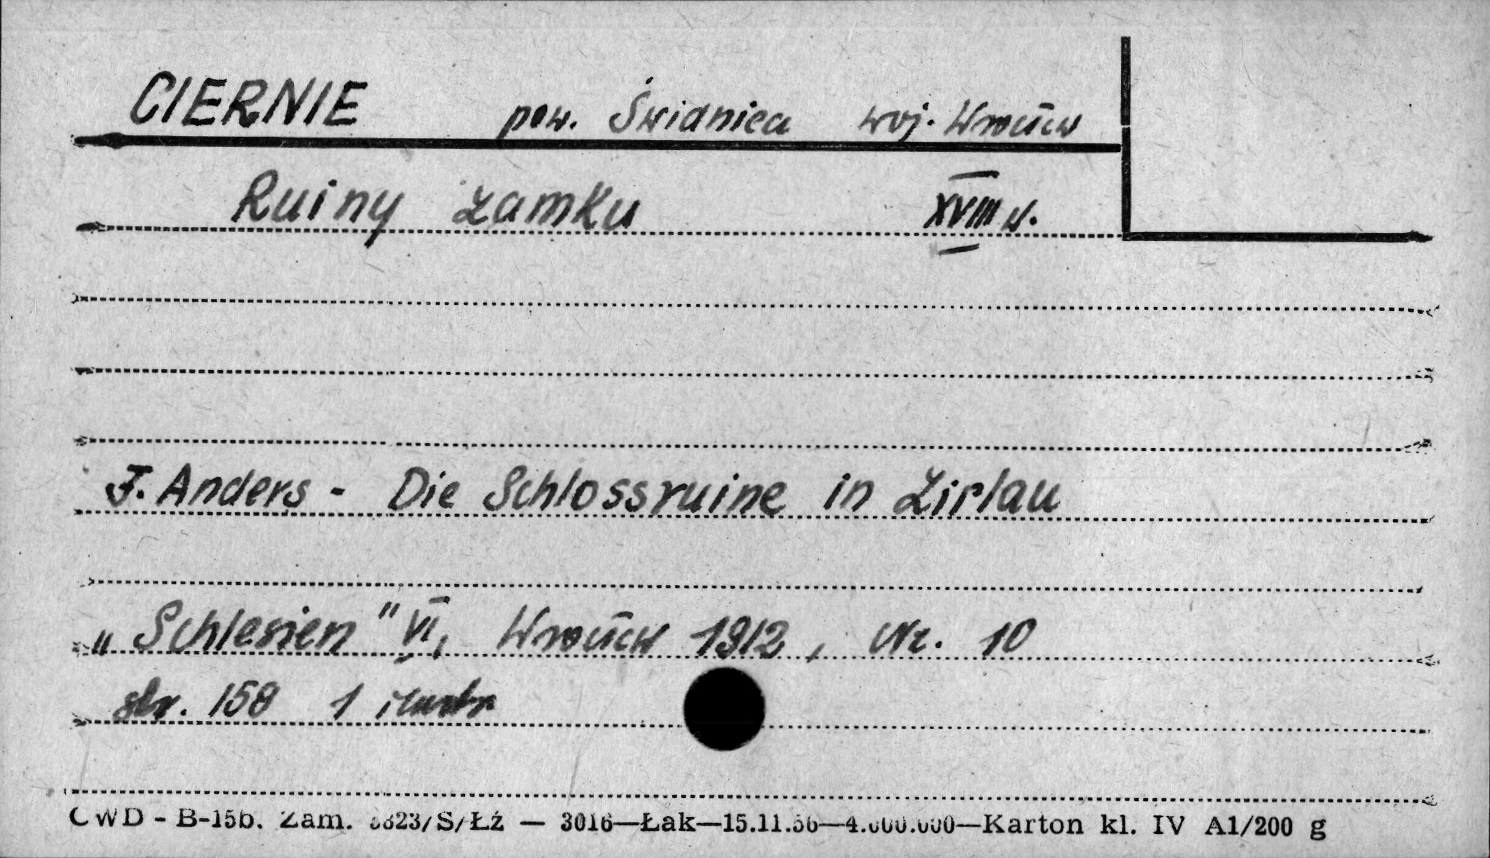 CIERNIE pow. Świdnica woj. Wrocław
Ruiny zamku XVIII w.
F. Anders - Die Schlossruine in Zirlau
„Schlesien" VI, Wrocław 1912, Nr. 10
str. 158 1 ilustr
CWD - B-15b. Zam. 8823/S/Łż — 3016—Łak—15.11.56—4.000.000—Karton kl. IV A1/200 g